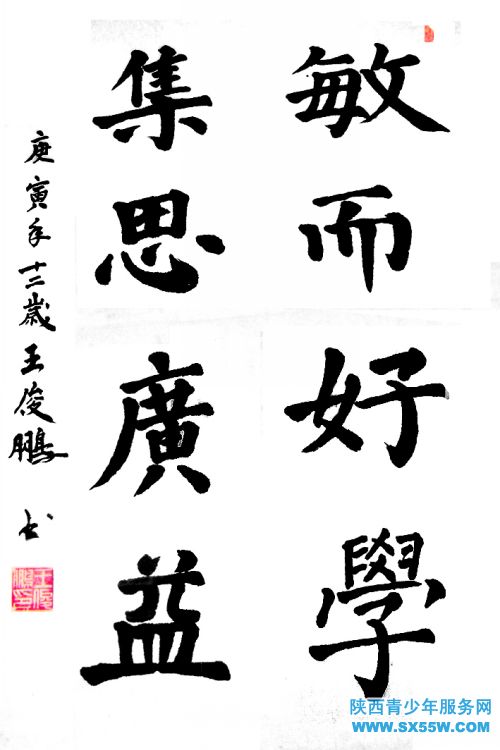 敏而好學
集思廣益
庚寅年十二歲王俊鵬 书
王俊鵬印
陕西青少年服务网
www.sx55w.com